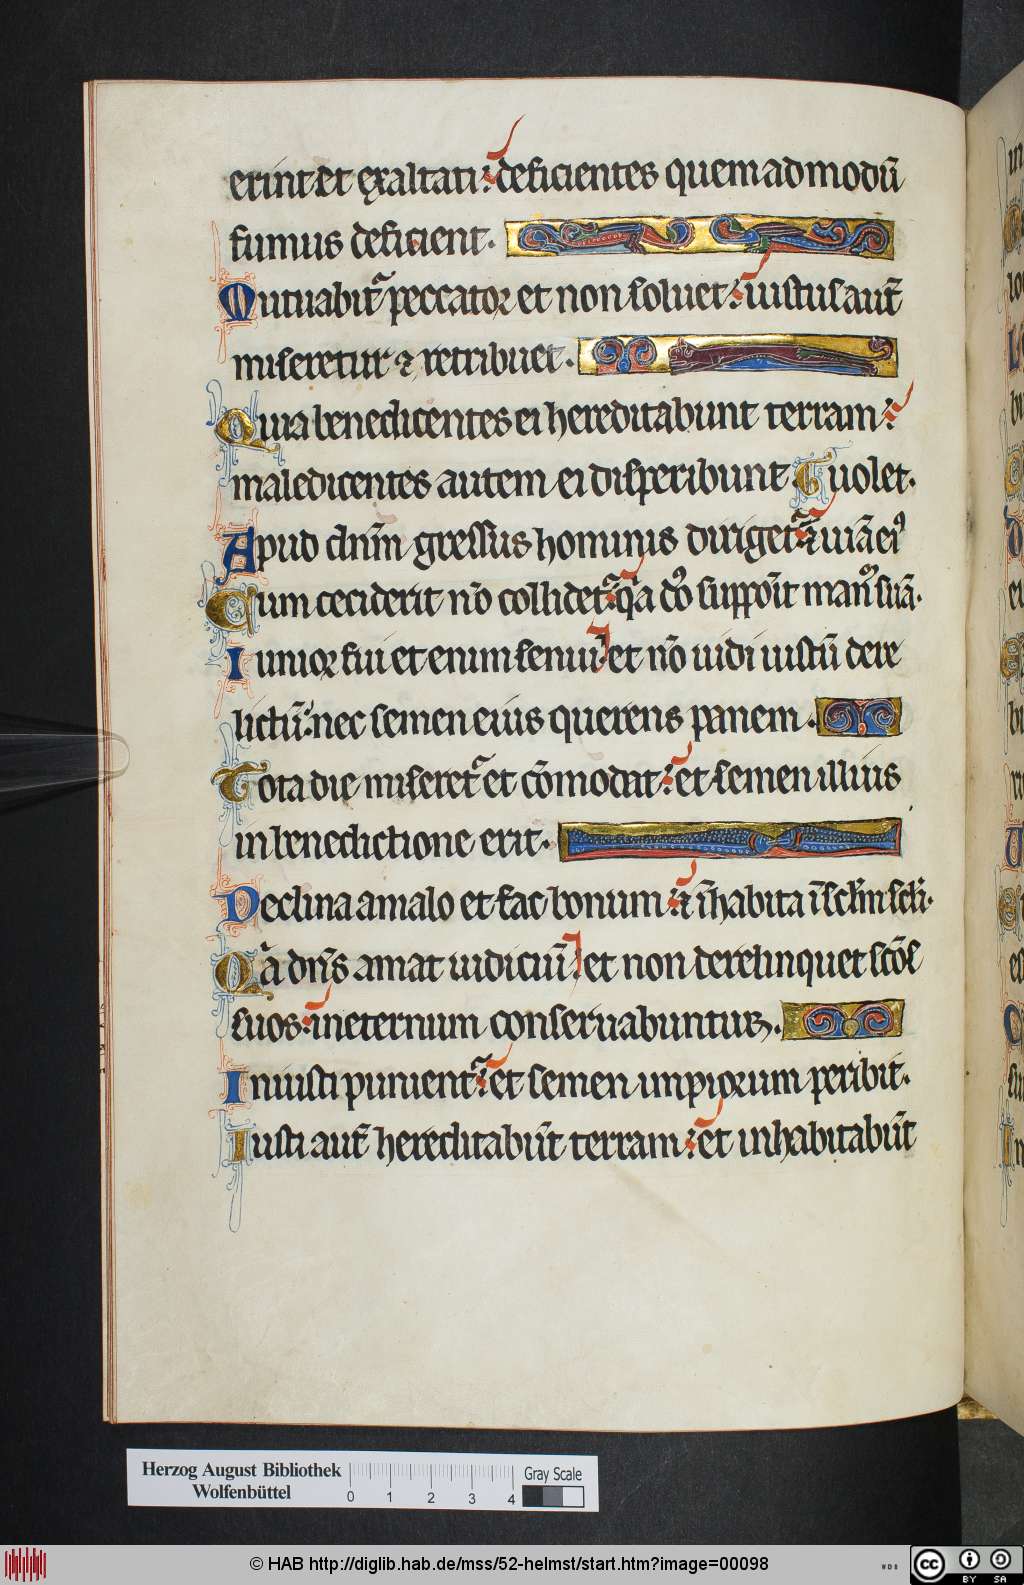 erint et exaltati: deficientes quem ad modū
fumus deficient.
Mutuabit᷑ peccator et non soluet: iustus aut̄
miseretur ⁊ retribuet.
Quia benedicentes ei hereditabunt terram:
maledicentes autem ei disperibunt Guolet.
Apud dn̄m gressus hominis dirigetᷓ: ⁊ uiā eiꝰ
Cum ceciderit nō collidet᷑: qᷓa dꝰ suppōit manū suā.
Iunior fui et enim senui: et nō uidi iustū dere
lictū: nec semen eius querens panem.
Tota die miseret᷑ et cōmodat: et semen illius
in benedictione erit.
Declina a malo et fac bonum: ⁊ īhabita ī sc̄lm sc̄li.
Qᷓa dn̄s amat iudiciū: et non derelinquet sc̄os
suos: in eternum conseruabuntur.
Iniusti punient᷑: et semen impiorum peribit.
Iusti aut̄ hereditabūt terram: et inhabitabūt
Herzog August Bibliothek
Wolfenbüttel
0 1 2 3 4
Gray Scale
© HAB http://diglib.hab.de/mss/52-helmst/start.htm?image=00098
cc BY SA